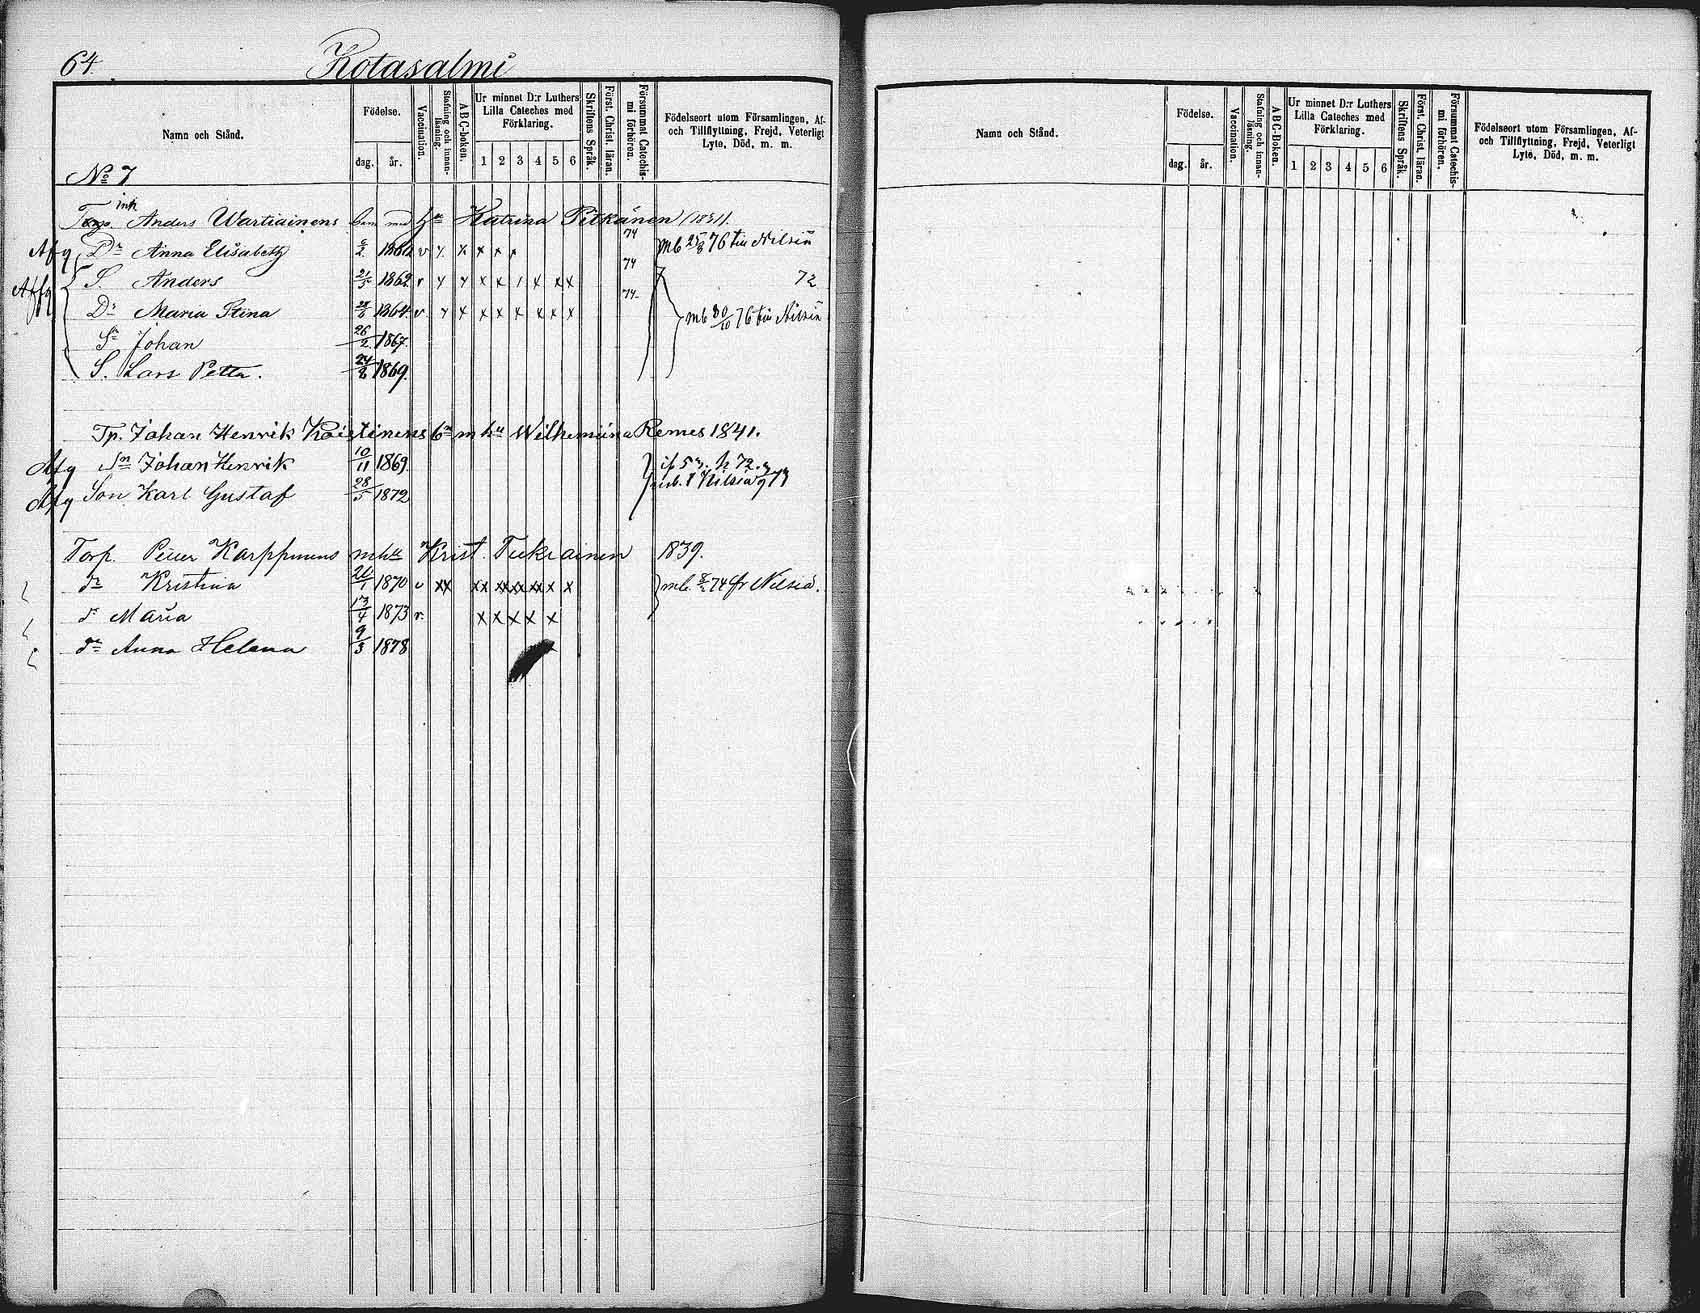 64. Kotasalmi
Namn och Stånd.
Födelse.
dag. år.
Vaccination.
Stafning och innan-läsning.
ABC-boken.
Ur minnet D:r Luthers
Lilla Cateches med
Förklaring.
1 2 3 4 5 6
Skriftens Språk.
Först. Christ. läran.
Försummat Catechis-
mi förhören.
Födelseort utom Församlingen, Af-
och Tillflyttning, Frejd, Veterligt
Lyte, Död, m. m.
No 7
Anders Wartiainens barn med hu Katrina Pitkänen 1831.
Afg Dr Anna Elisabeth 2 186 v x x x x 74 mb 25/8 76 till Nilsiä
Afg S. Anders 21/5 1862 v x x x x 1 x x x 74 72
Dr Maria Stina 1864 v x x x x x x x x 74 mb 30/10 76 till Nilsiä
Sn Johan 26/2 1867.
S. Lars Petter. 24/8 1869.
Tp. Johan Henrik Koistinens bn m hu Wilhemiina Remes 1841.
Afg Sn Johan Henrik 10/11 1869.
Afg Son Karl Gustaf 28/5 1872 Nilsiä 73
Torp. Petter Karppinens m hu Krist. Tukiainen 1839.
dr Kristina 1870 v xx xx xx xx xx x x mb. 74 fr Nilsiä.
dr Maria 13/4 1873 v. x x x x x
dr Anna Helena 9/3 1878
Namn och Stånd.
Födelse.
dag. år.
Vaccination.
Stafning och innan-läsning.
ABC-Boken.
Ur minnet D:r Luthers
Lilla Cateches med
Förklaring.
1 2 3 4 5 6
Skriftens Språk.
Först. Christ. läran.
Försummat Catechis-
mi förhören.
Födelseort utom Församlingen, Af-
och Tillflyttning, Frejd, Veterligt
Lyte, Död, m. m.